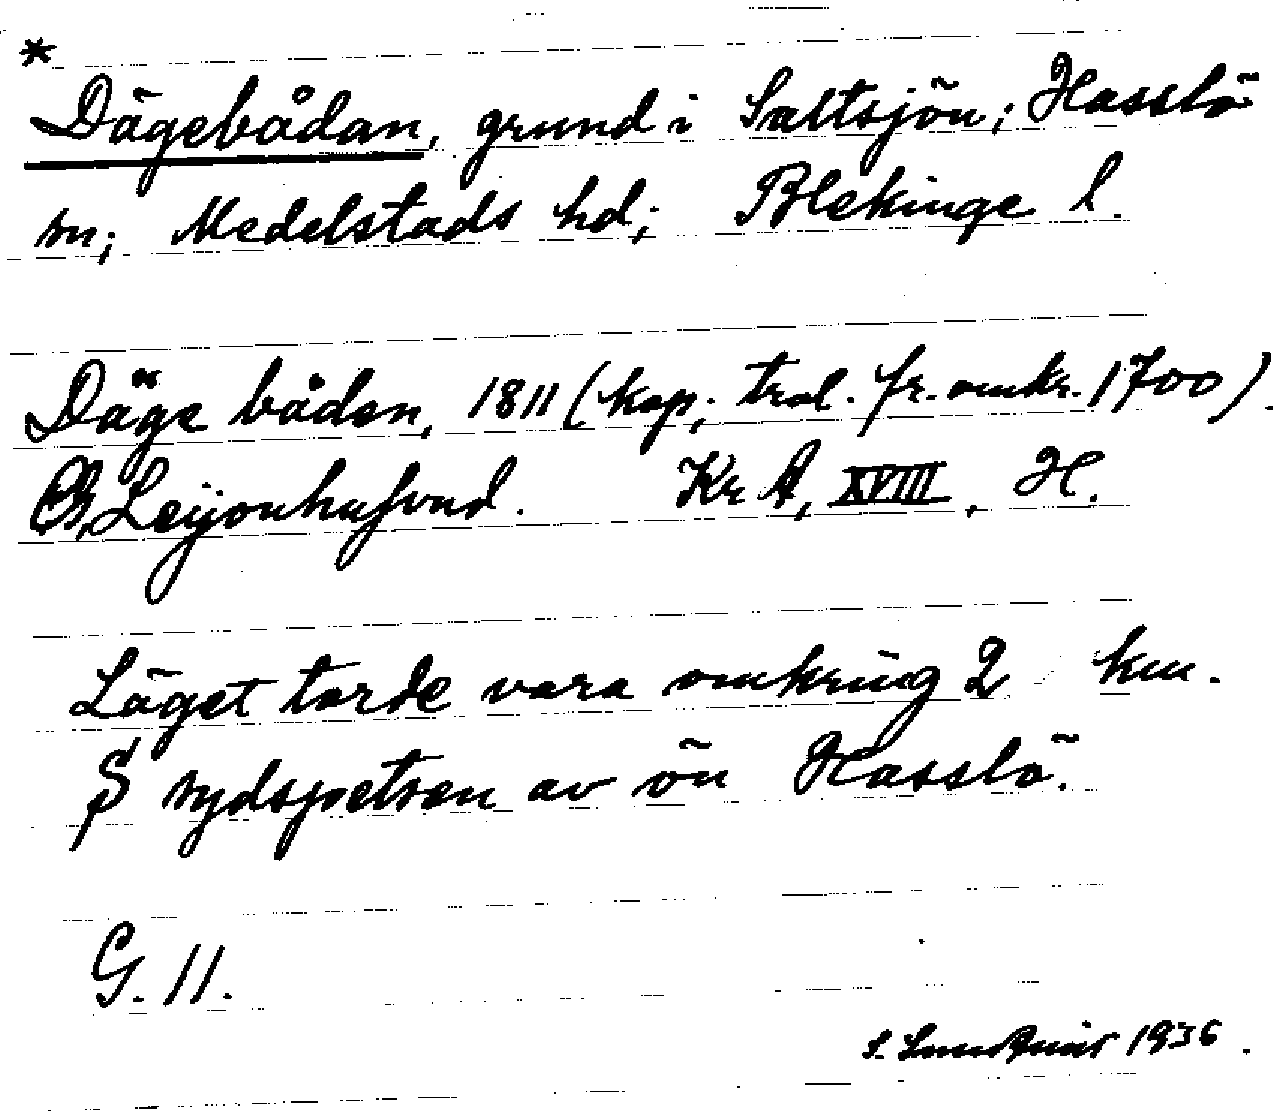 *
Dägebådan, grund i Saltsjön; Hasslö
sn; Medelstads hd; Blekinge l.
Däge båden, 1811 (kop; trol. fr. omkr. 1700).
Leijonhufvud. Kr A, XVIII, H.
Läget torde vara omkring 2 km.
S sydspetsen av ön Hasslö.
G. 11.
S. Lundkvist 1936.